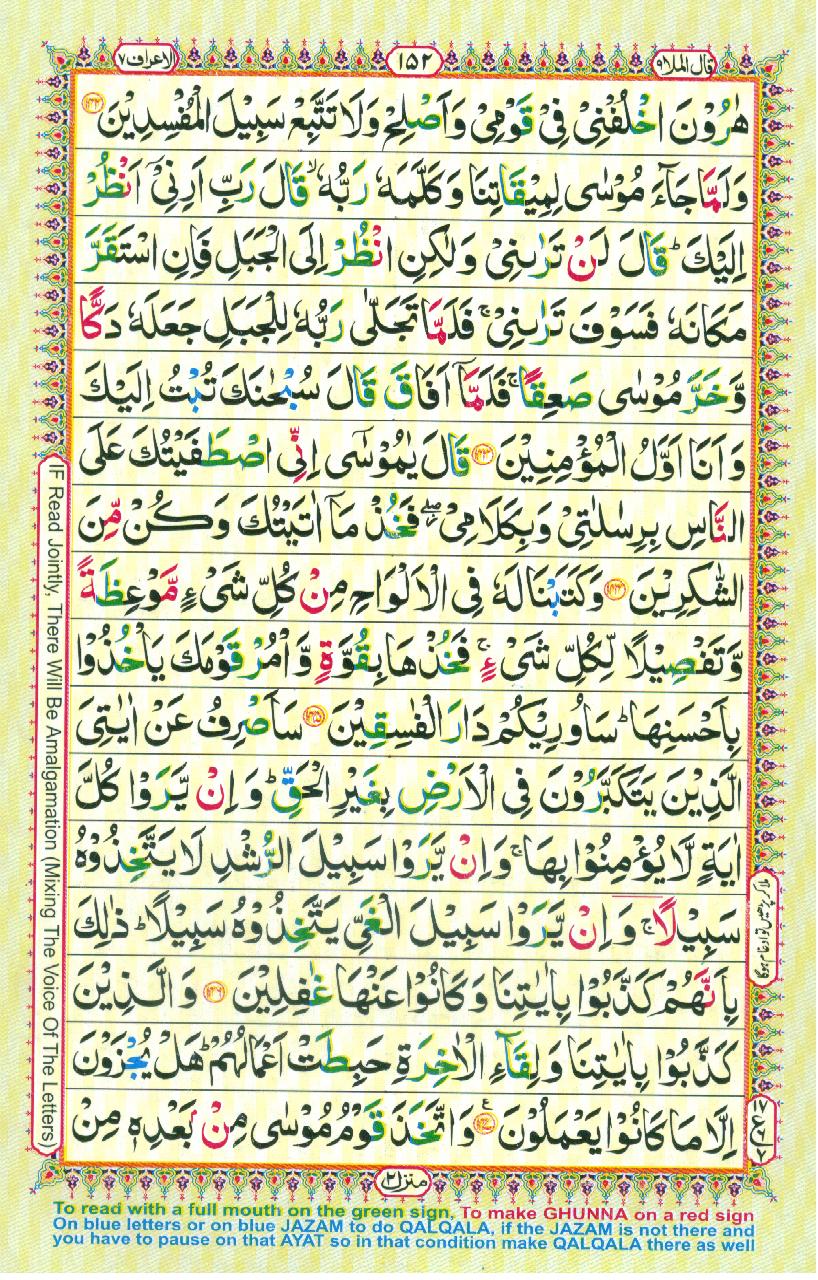 قال الملا ٩
١٥٢
الاعراف ٧
هٰرُوۡنَ اخۡلُفۡنِىۡ فِىۡ قَوۡمِىۡ وَاَصۡلِحۡ وَلَا تَتَّبِعۡ سَبِيۡلَ الۡمُفۡسِدِيۡنَ ﴿۱۴۲﴾
وَلَمَّا جَآءَ مُوۡسٰى لِمِيۡقَاتِنَا وَكَلَّمَهٗ رَبُّهٗ ۙ قَالَ رَبِّ اَرِنِىۡۤ اَنۡظُرۡ
اِلَيۡكَ ؕ قَالَ لَنۡ تَرٰٮنِىۡ وَلٰكِنِ انْظُرۡ اِلَى الۡجَـبَلِ فَاِنِ اسۡتَقَرَّ
مَكَانَهٗ فَسَوۡفَ تَرٰٮنِىۡ ۚ فَلَمَّا تَجَلّٰى رَبُّهٗ لِلۡجَبَلِ جَعَلَهٗ دَكًّا
وَّخَرَّ مُوۡسٰى صَعِقًا ۚ فَلَمَّاۤ اَفَاقَ قَالَ سُبۡحٰنَكَ تُبۡتُ اِلَيۡكَ
وَاَنَا اَوَّلُ الۡمُؤۡمِنِيۡنَ ﴿۱۴۳﴾ قَالَ يٰمُوۡسٰٓى اِنِّى اصۡطَفَيۡتُكَ عَلَى
النَّاسِ بِرِسٰلٰتِىۡ وَبِكَلَامِىۡ ۖ فَخُذۡ مَاۤ اٰتَيۡتُكَ وَكُنۡ مِّنَ
الشّٰكِرِيۡنَ ﴿۱۴۴﴾ وَكَتَبۡنَا لَهٗ فِى الۡاَلۡوَاحِ مِنۡ كُلِّ شَىۡءٍ مَّوۡعِظَةً
وَّتَفۡصِيۡلًا لِّكُلِّ شَىۡءٍ ۚ فَخُذۡهَا بِقُوَّةٍ وَّاۡمُرۡ قَوۡمَكَ يَاۡخُذُوۡا
بِاَحۡسَنِهَا ؕ سَاُورِيۡكُمۡ دَارَ الۡفٰسِقِيۡنَ ﴿۱۴۵﴾ سَاَصۡرِفُ عَنۡ اٰيٰتِىَ
الَّذِيۡنَ يَتَكَبَّرُوۡنَ فِى الۡاَرۡضِ بِغَيۡرِ الۡحَـقِّ ؕ وَاِنۡ يَّرَوۡا كُلَّ
اٰيَةٍ لَّا يُؤۡمِنُوۡا بِهَا ۚ وَاِنۡ يَّرَوۡا سَبِيۡلَ الرُّشۡدِ لَا يَتَّخِذُوۡهُ
سَبِيۡلًا ۚ وَاِنۡ يَّرَوۡا سَبِيۡلَ الۡغَىِّ يَتَّخِذُوۡهُ سَبِيۡلًا ؕ ذٰلِكَ
بِاَنَّهُمۡ كَذَّبُوۡا بِاٰيٰتِنَا وَكَانُوۡا عَنۡهَا غٰفِلِيۡنَ ﴿۱۴۶﴾ وَالَّذِيۡنَ
كَذَّبُوۡا بِاٰيٰتِنَا وَلِقَآءِ الۡاٰخِرَةِ حَبِطَتۡ اَعۡمَالُهُمۡ ؕ هَلۡ يُجۡزَوۡنَ
اِلَّا مَا كَانُوۡا يَعۡمَلُوۡنَ ﴿۱۴۷﴾ ع وَاتَّخَذَ قَوۡمُ مُوۡسٰى مِنۡۢ بَعۡدِهٖ مِنۡ
منزل ٢
IF Read Jointly, There Will Be Amalgamation (Mixing The Voice Of The Letters)
To read with a full mouth on the green sign, To make GHUNNA on a red sign
On blue letters or on blue JAZAM to do QALQALA, if the JAZAM is not there and
you have to pause on that AYAT so in that condition make QALQALA there as well